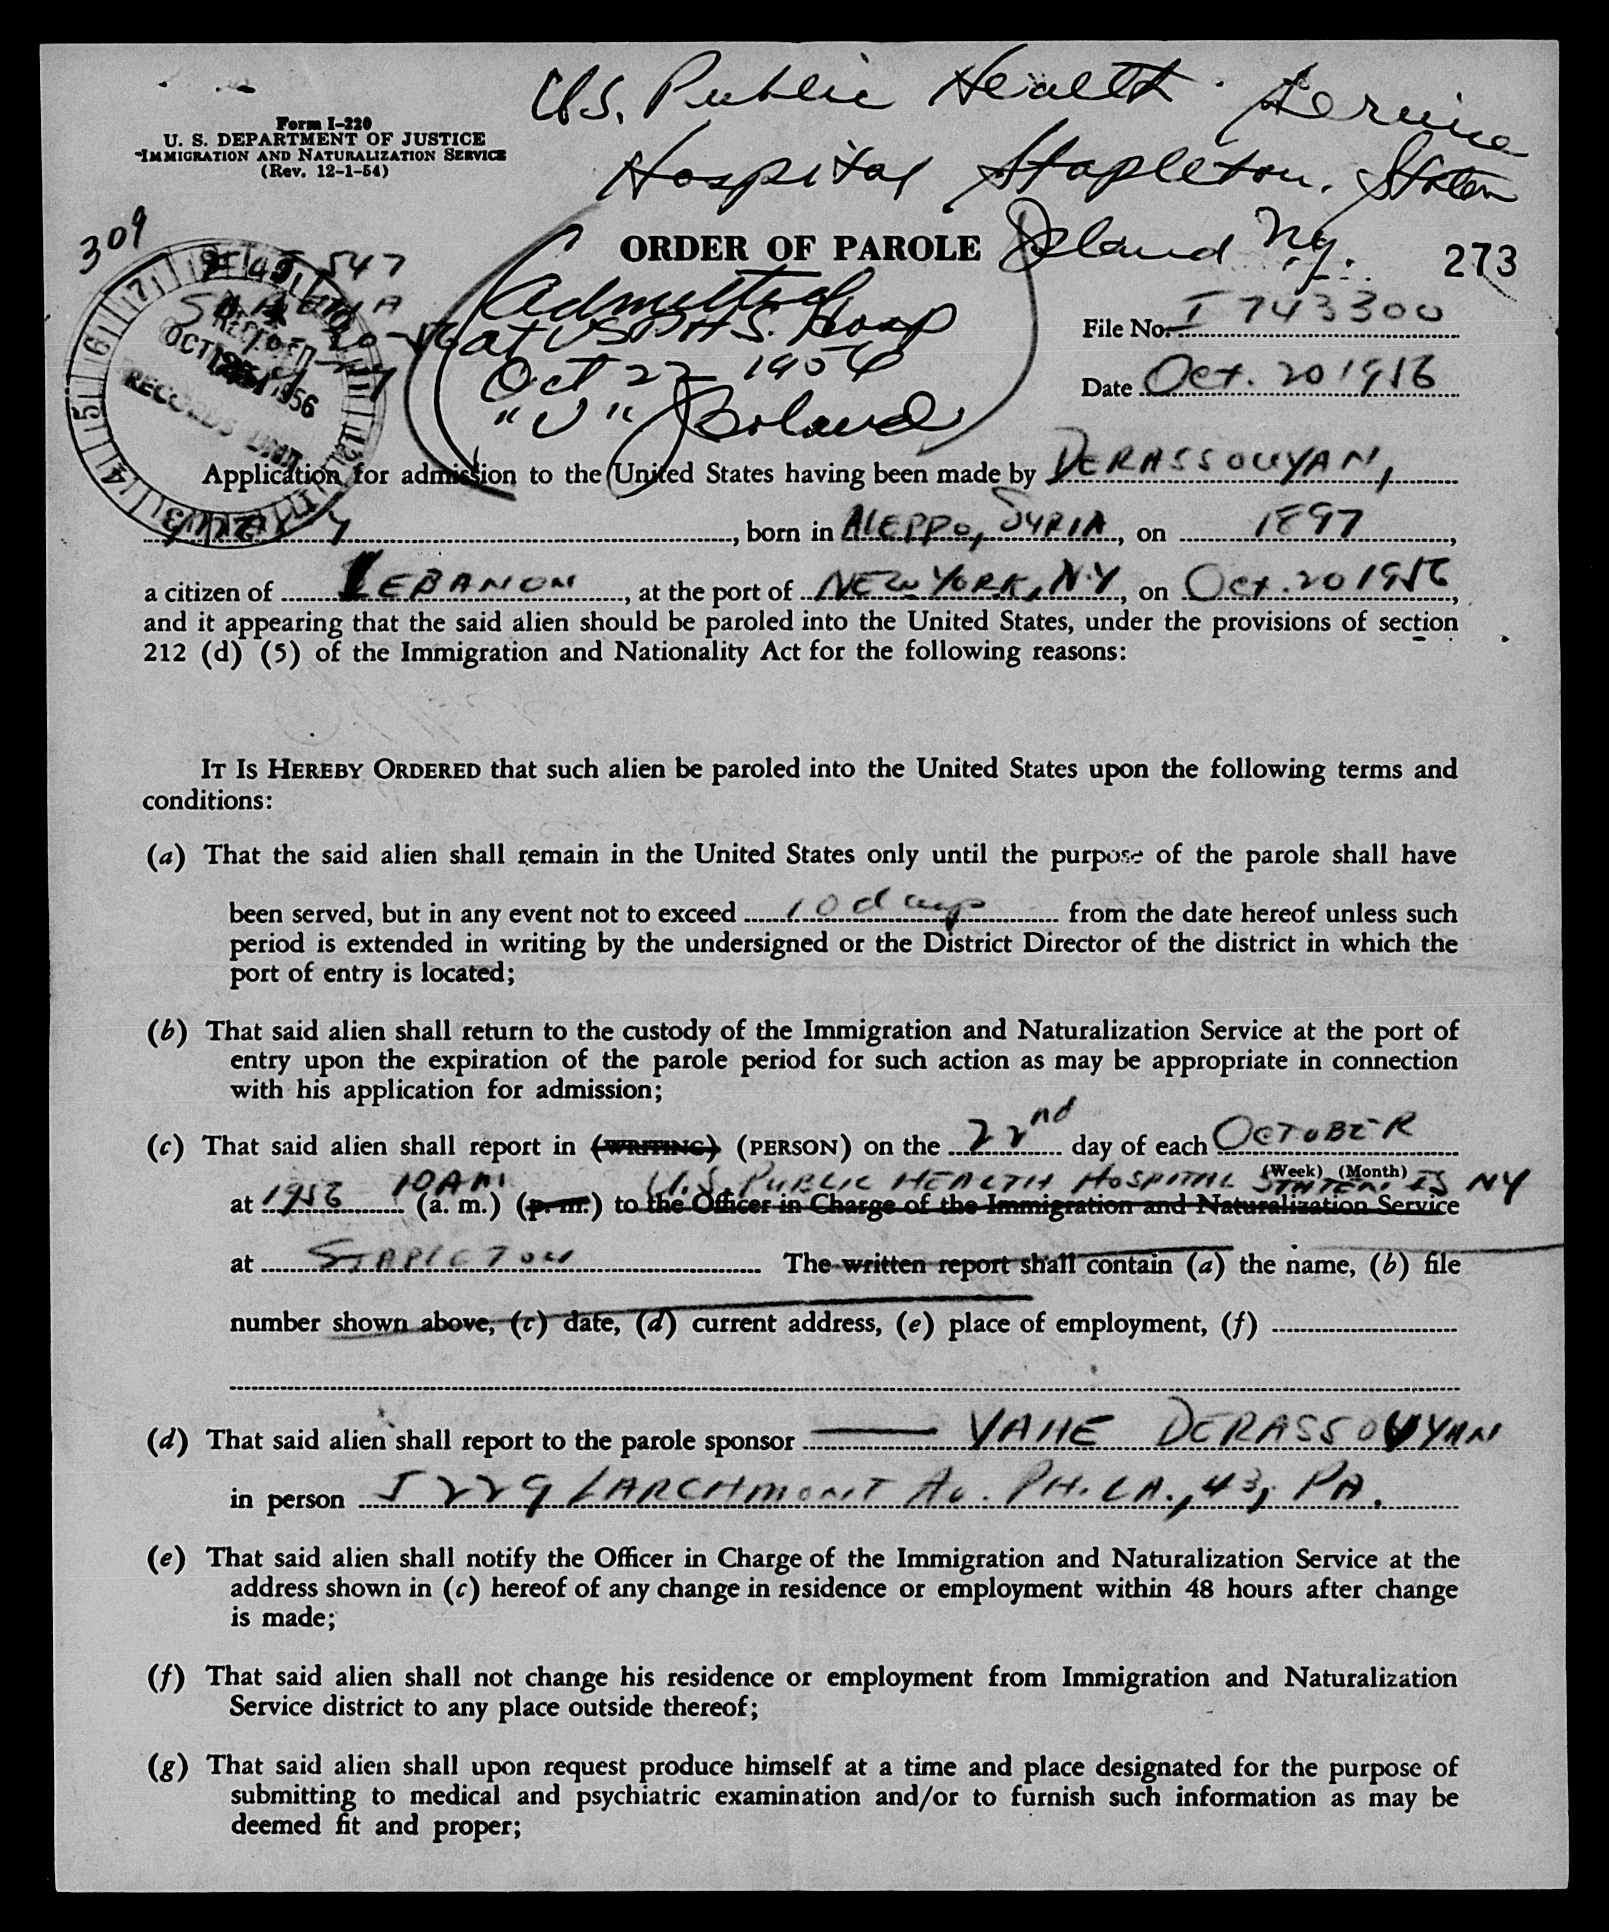 U.S. Public Health Service
Hospital Stapleton, Staten
Island N.Y.
Form I-220
U. S. DEPARTMENT OF JUSTICE
IMMIGRATION AND NATURALIZATION SERVICE
(Rev. 12-1-54)
309
ORDER OF PAROLE
273
547
RECORDS UNIT
Admitted
at USPHS. Hosp
Oct 22 1956
"U" Boland
File No. T 743300
Date Oct. 20 1956
Application for admission to the United States having been made by DERASSOUYAN,
, born in ALEPPO, SYRIA, on 1897,
a citizen of LEBANON, at the port of NEW YORK, N.Y, on Oct. 20 1956,
and it appearing that the said alien should be paroled into the United States, under the provisions of section
212 (d) (5) of the Immigration and Nationality Act for the following reasons:
IT IS HEREBY ORDERED that such alien be paroled into the United States upon the following terms and
conditions:
(a) That the said alien shall remain in the United States only until the purpose of the parole shall have
been served, but in any event not to exceed 10 days from the date hereof unless such
period is extended in writing by the undersigned or the District Director of the district in which the
port of entry is located;
(b) That said alien shall return to the custody of the Immigration and Naturalization Service at the port of
entry upon the expiration of the parole period for such action as may be appropriate in connection
with his application for admission;
(c) That said alien shall report in (WRITING) (PERSON) on the 22nd day of each OCTOBER
(Week) (Month)
U.S. PUBLIC HEALTH HOSPITAL STATEN IS NY
at 1956 10AM (a. m.) (p. m.) to the Officer in Charge of the Immigration and Naturalization Service
at STAPLETON The written report shall contain (a) the name, (b) file
number shown above, (c) date, (d) current address, (e) place of employment, (f)
(d) That said alien shall report to the parole sponsor VAHE DERASSOUYAN
in person 5229 LARCHMONT Av. PHILA., 43, PA.
(e) That said alien shall notify the Officer in Charge of the Immigration and Naturalization Service at the
address shown in (c) hereof of any change in residence or employment within 48 hours after change
is made;
(f) That said alien shall not change his residence or employment from Immigration and Naturalization
Service district to any place outside thereof;
(g) That said alien shall upon request produce himself at a time and place designated for the purpose of
submitting to medical and psychiatric examination and/or to furnish such information as may be
deemed fit and proper;